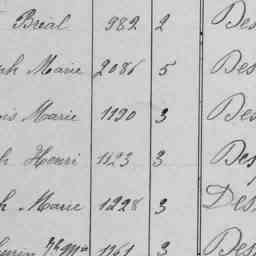 Bréal 982 2 Des
ph Marie 2086 5 Des
ois Marie 1190 3 Des
h Henri 1123 3 Des
h Marie 1228 3 Des
1161 3 Des